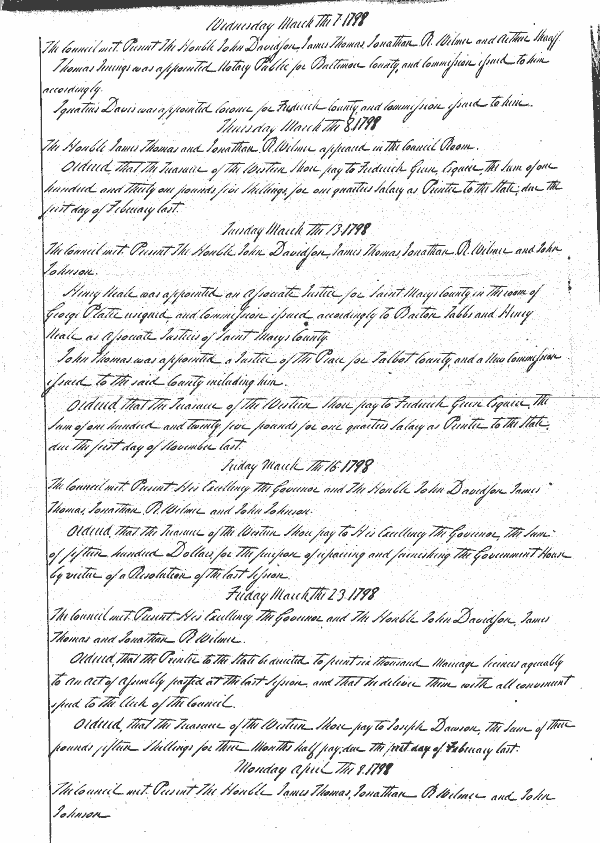 Wednesday March the 7. 1798
The Council met. Present The Honble John Davidson, James Thomas, Jonathan R. Wilmer and Arthur Shaaff
Thomas Jennings was appointed Notary Public for Baltimore County, and Commission issued to him
accordingly.
Ignatius Davis was appointed Coroner for Frederick County and Commission issued to him.
Thursday March the 8. 1798
The Honble James Thomas and Jonathan R. Wilmer appeared in the Council Room.
Ordered, that the Treasurer of the Western Shore pay to Frederick Green, Esquire, the sum of one
hundred and thirty one pounds five shillings, for one quarters Salary as Printer to the State, due the
first day of February last.
Tuesday March the 13. 1798
The Council met. Present The Honble John Davidson, James Thomas, Jonathan R. Wilmer and John
Johnson.
Henry Neale was appointed an Associate Justice for Saint Marys County in the room of
George Plater resigned, and Commission issued accordingly to Barton Tabbs and Henry
Neale as Associate Justices of Saint Marys County.
John Thomas was appointed a Justice of the Peace for Talbot County, and a New Commission
issued to the said County including him.
Ordered, that the Treasurer of the Western Shore pay to Frederick Green Esquire, the
Sum of one hundred and twenty five pounds for one quarters Salary as Printer to the State,
due the first day of November last.
Friday March the 16. 1798
The Council met. Present His Excellency the Governor and The Honble John Davidson James
Thomas Jonathan R. Wilmer and John Johnson.
Ordered, that the Treasurer of the Western Shore pay to His Excellency the Governor, the Sum
of fifteen hundred Dollars, for the purpose of repairing and furnishing the Government House
by virtue of a Resolution of the last Session.
Friday March the 23. 1798
The Council met. Present His Excellency the Governor and The Honble John Davidson, James
Thomas and Jonathan R. Wilmer.
Ordered, that the Printer to the State be directed to print six thousand Marriage licences agreeably
to an act of Assembly passed at the last Session, and that he deliver them with all convenient
speed to the Clerk of the Council.
Ordered, that the Treasurer of the Western Shore pay to Joseph Dawson, the Sum of three
pounds fifteen Shillings for three Months half pay, due the first day of February last.
Monday April the 2. 1798
The Council met. Present The Honble James Thomas, Jonathan R. Wilmer and John
Johnson